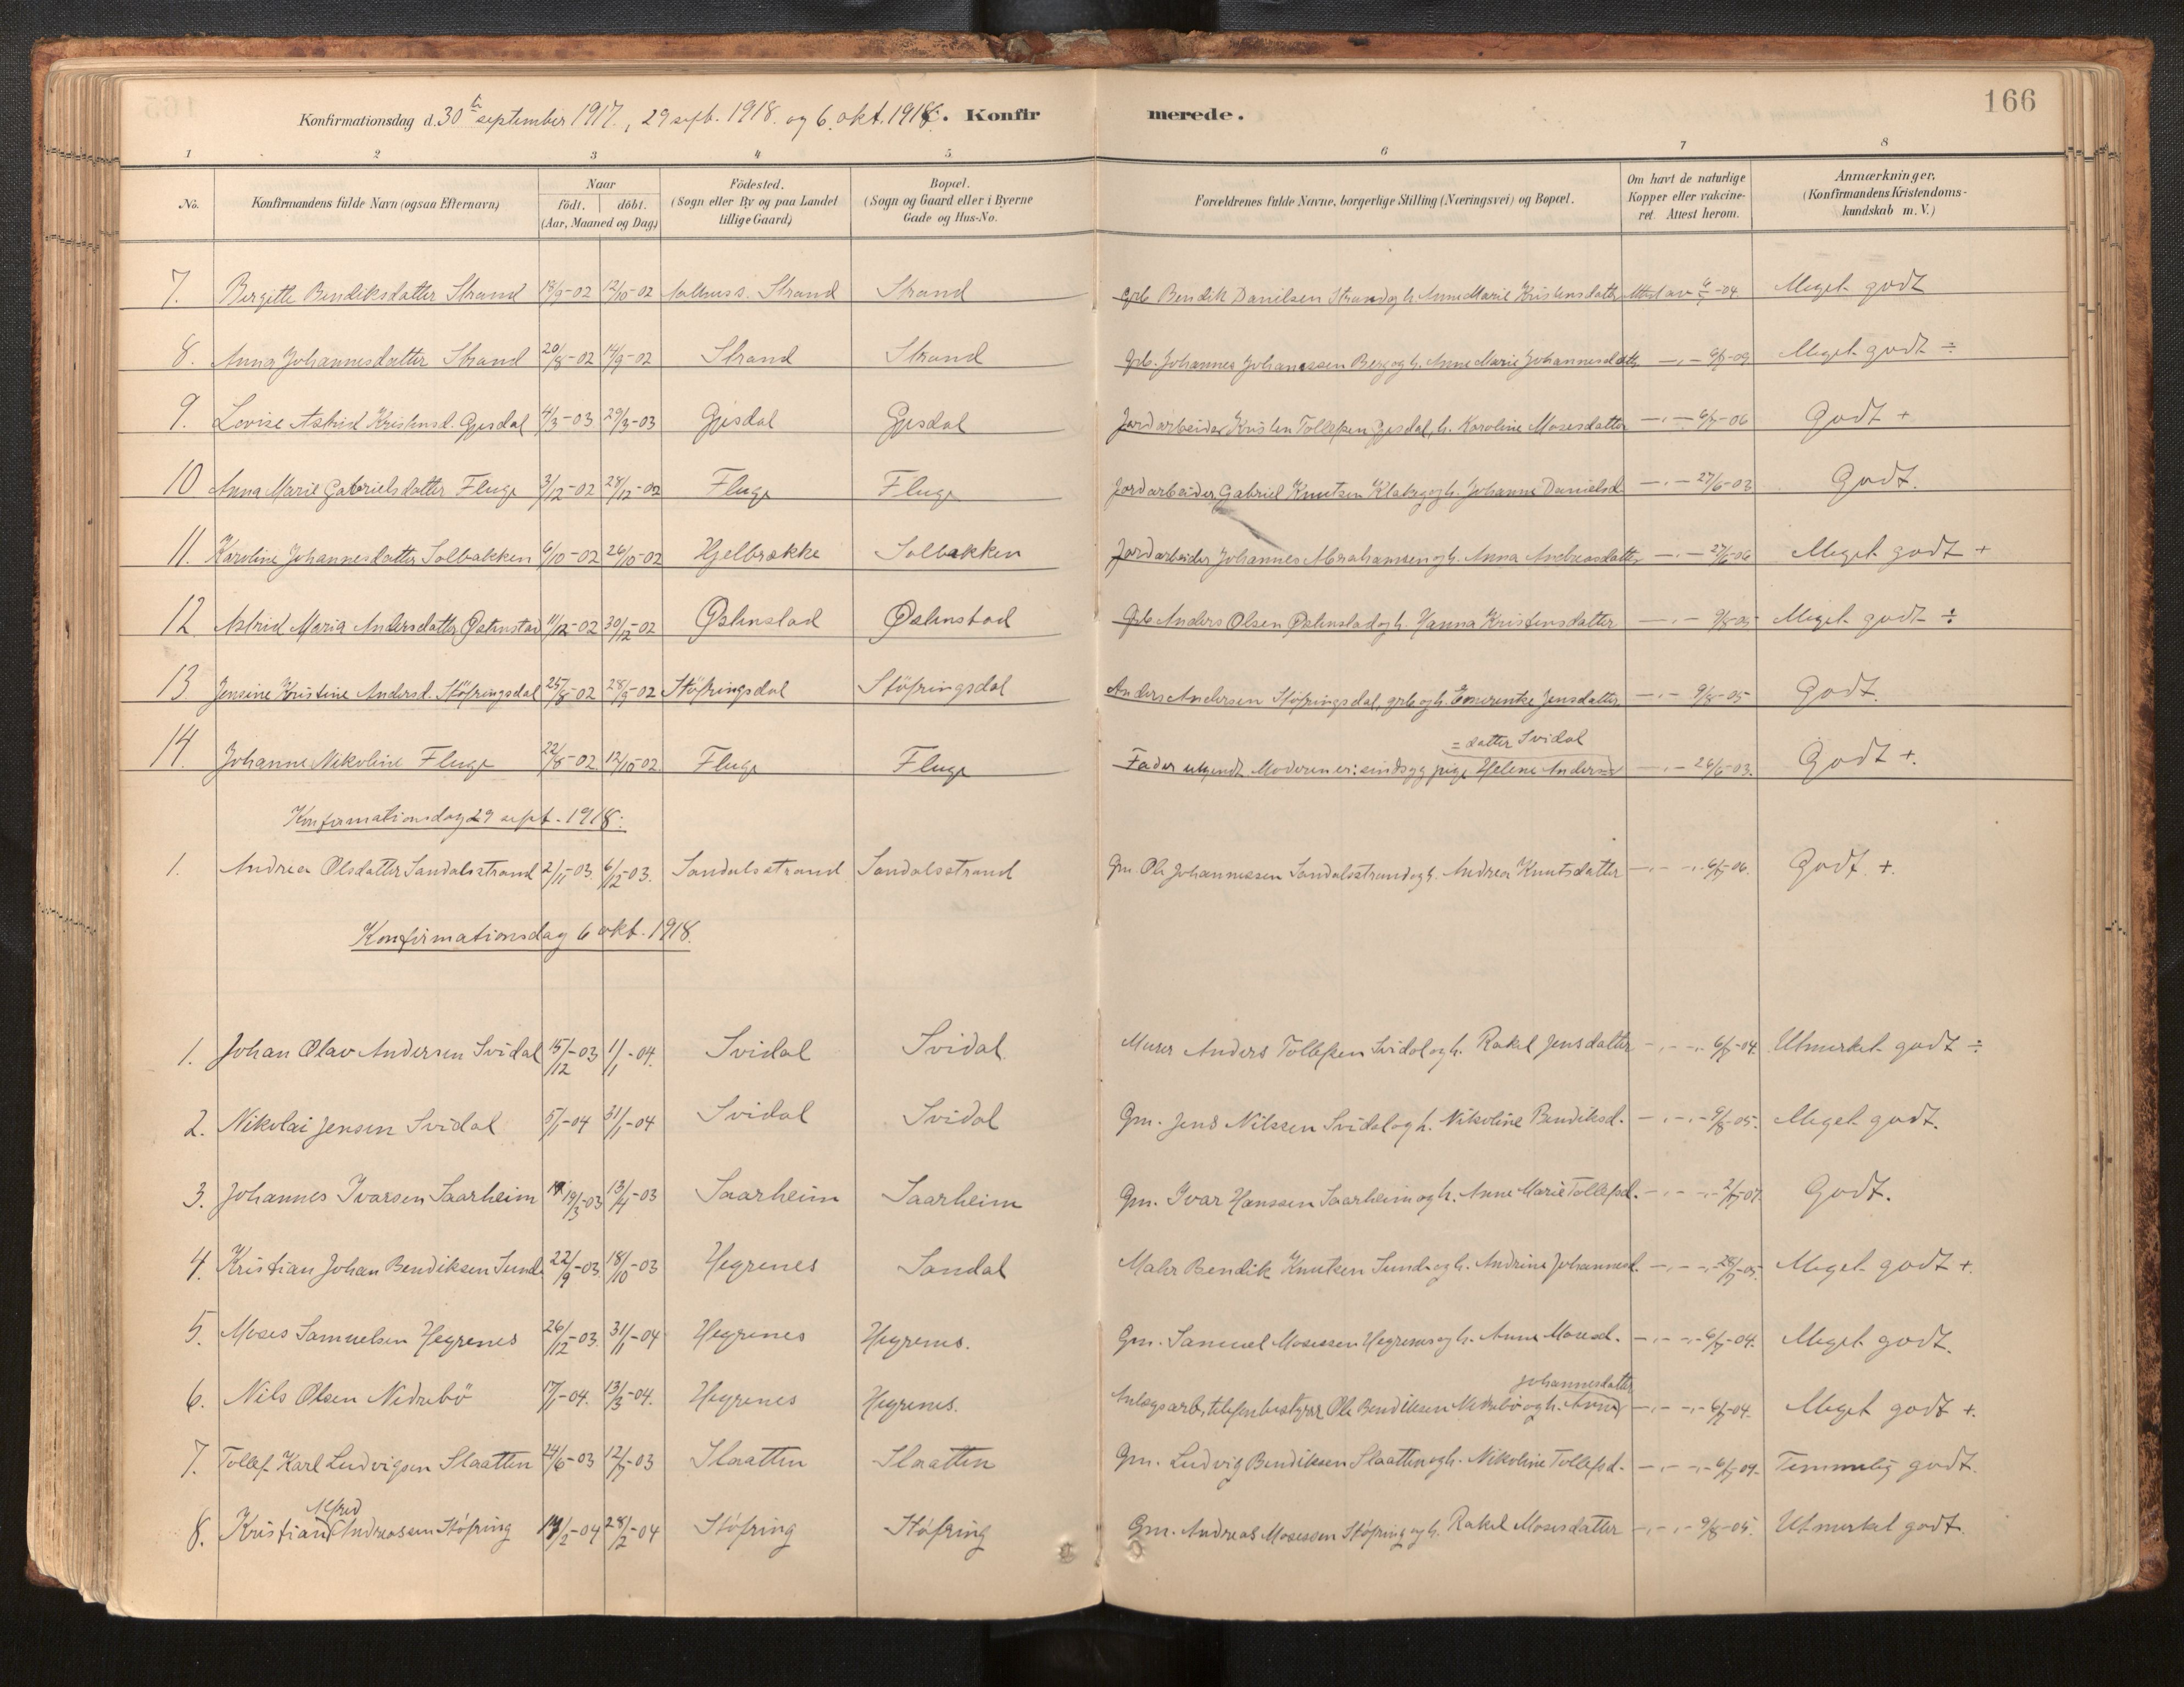 166
Konfirmationsdag d. 30te september 1917., 29 sept. 1918. og 6. okt. 1918. Konfirmerede.
1 2 3 4 5 6 7 8
No. Konfirmandens fulde Navn (ogsaa Efternavn) Naar födt. döbt. (Aar, Maaned og Dag) Födested. (Sogn eller By og paa Landet tillige Gaard) Bopæl. (Sogn og Gaard eller i Byerne Gade og Hus-No. Forældrenes fulde Navne, borgerlige Stilling (Næringsvei) og Bopæl. Om havt de naturlige Kopper eller vakcineret. Attest herom. Anmærkninger. (Konfirmandens Kristendomskundskab m. V.)
7. Bergitte Bendiksdatter Strand 18/9-02 12/10-02 Strand Strand Grb. Bendik Danilsen Strand og h. Anne Marie Kristensdatter Attest av -04. Meget godt
8. Anna Johannesdatter Strand 20/8-02 14/9-02 Strand Strand Grb. Johannes Johannessen Berg og h. Anne Marie Johannesdatter Meget godt ÷
9. Lovise Astrid Kristensd. Gjesdal 4/3-03 29/3-03 Gjesdal Gjesdal Jordarbeider Kristen Tollefsen Gjesdal, h. Karoline Mosesdatter -06 Godt +
10 Anna Marie Gabrielsdatter Fluge 3/12-02 28/12-02 Fluge Fluge Jordarbeider Gabriel Knutsen Klakegg og h. Johanne Danielsd. 27/6-03 Godt.
11. Karoline Johannesdatter Solbakken 6/10-02 26/10-02 Hjelbrække Solbakken Jordarbeider Johannes Abrahamsen og h. Anna Andreasdatter 27/6-06 Meget godt +
12 Astrid Maria Andersdatter Østenstad 11/12-02 30/12-02 Østenstad Østenstad Grb Anders Olsen Østenstad og h. Hanna Kristensdatter 9/8-05 Meget godt ÷
13 Jensine Kristine Andersd. Støfringsdal 25/8-02 28/9-02 Støfringsdal Støfringsdal Anders Andersen Støfringsdal, grb og h. Emerentse Jensdatter 9/8-05 Godt.
= datter Svidal
14. Johanne Nikoline Fluge 22/8-02 12/10-02 Fluge Fluge Fader ukjendt. Moderen er: sindssyg pige Helene Anders= 26/6-03. Godt +.
Konfirmationsdag 29 sept. 1918:
1. Andrea Olsdatter Sandalsstrand 2/11-03. 6/12-03. Sandalsstrand Sandalsstrand Gm. Ole Johannessen Sandalsstrand og h. Andrea Knutsdatter -06. Godt +.
Konfirmationsdag 6 okt. 1918.
1. Johan Olav Andersen Svidal 15/12-03 1/1-04. Svidal Svidal Murer Anders Tollefsen Svidal og h. Rakel Jensdatter -04. Utmerket godt ÷
2. Nikolai Jensen Svidal 5/1-04 31/1-04 Svidal Svidal Gm. Jens Nilssen Svidal og h. Nikoline Bendiksd. 9/8-05. Meget godt.
3. Johannes Ivarsen Saarheim 19/3-03 13/4-03 Saarheim Saarheim Gm. Ivar Hanssen Saarheim og h. Anne Marie Tollefsd. Godt.
4. Kristian Johan Bendiksen Sunde 22/9-03 18/10-03 Hegrenes Sandal Maler Bendik Knutsen Sunde og h. Andrine Johannesd. -05. Meget godt +.
5. Moses Samuelsen Hegrenes 26/12-03. 31/1-04 Hegrenes Hegrenes. Gm. Samuel Mosessen Hegrenes og h. Anne Mosesd. -04. Meget godt.
Johannesdatter
6. Nils Olsen Nedrebö 17/1-04. 13/3-04. Hegrenes Hegrenes. Anlægsarb., telefonbestyrer Ole Bendiksen Nedrebö og h. Anne -04. Meget godt +.
7. Tollef Karl Ludvigsen Slaatten 14/6-03 12/7-03 Slaatten Slaatten Gm. Ludvig Bendiksen Slaatten og h. Nikoline Tollefsd. Temmelig godt.
Alfred
8. Kristian Andreassen Støfring 14/2-04 28/2-04 Støfring Støfring Gm. Andreas Mosessen Støfring og h. Rakel Mosesdatter 9/8-05. Utmerket godt.